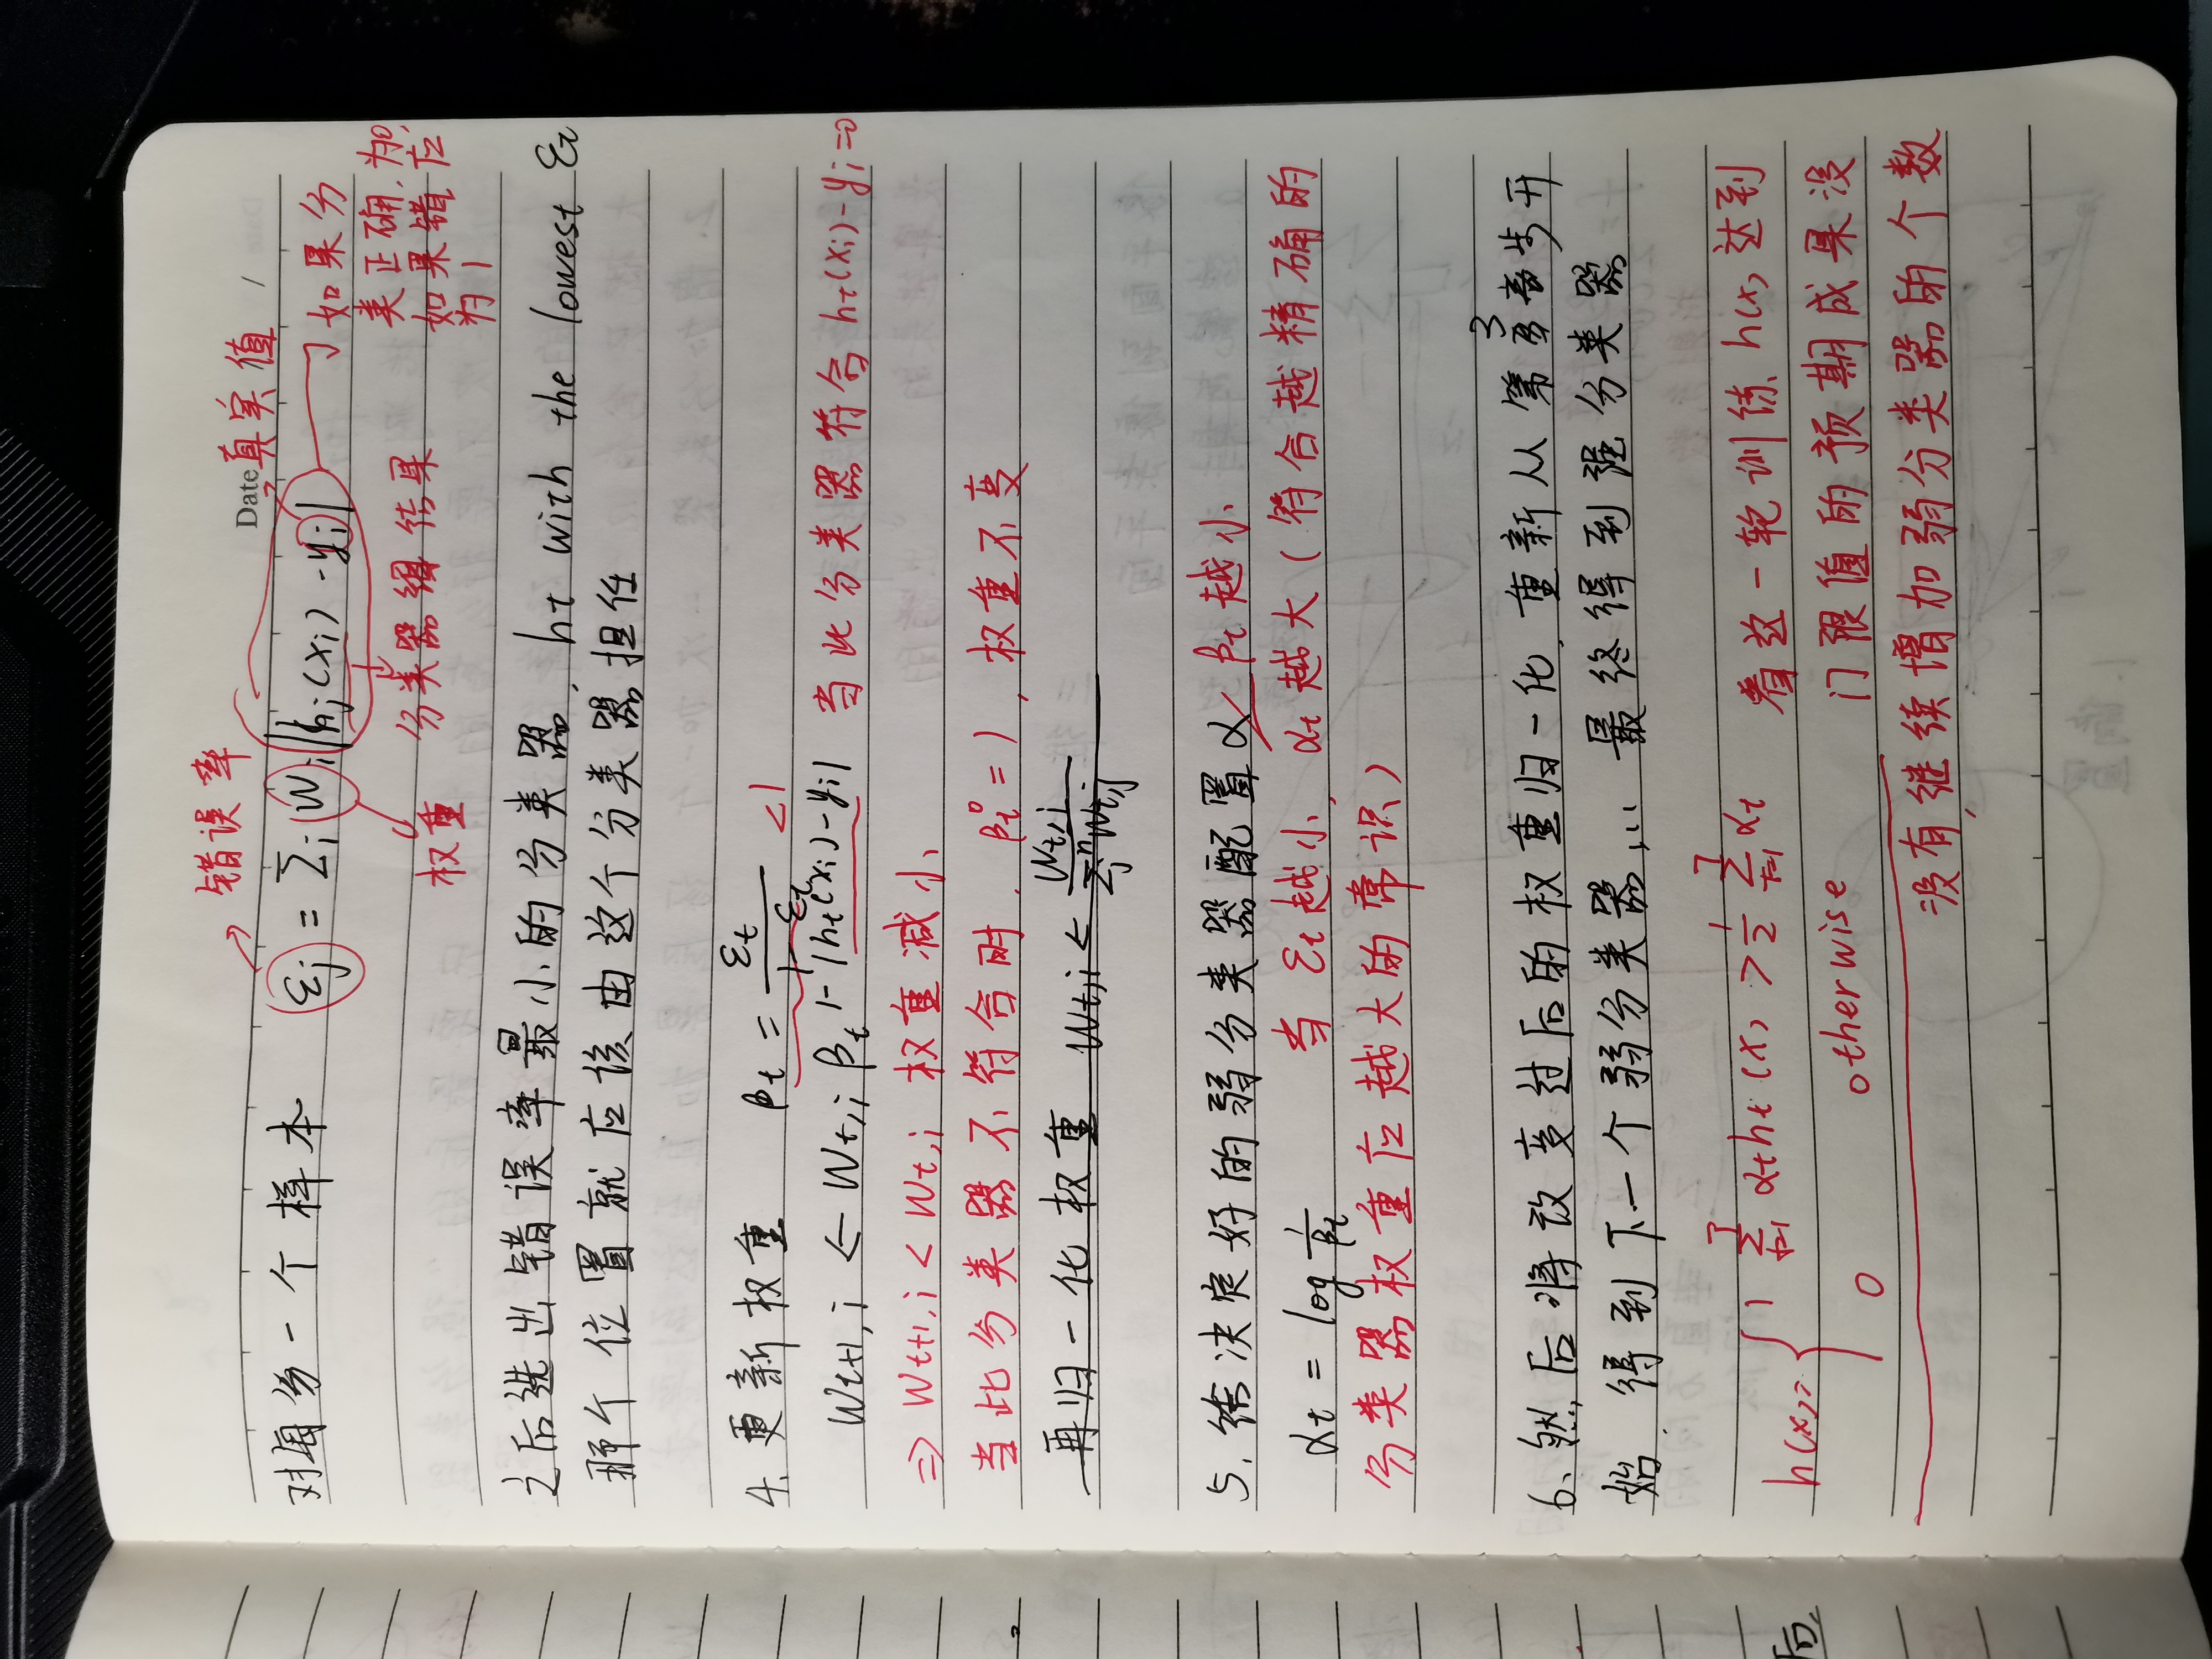 Date 真实值 /
错误率
对每一个样本 εj = Σi Wi |hj(xi) - yi|
如果分
类正确,为0,
如果错,应
为1
分类器得结果
权重
之后选出错误率最小的分类器, ht with the lowest εt
那个位置就应该由这个分类器担任
4. 更新权重 βt = εt / 1-εt <1
Wt+1,i ← Wt,i βt^1-|ht(xi)-yi| 当此分类器符合 ht(xi)-yi=0
⇒ Wt+1,i < Wt,i 权重减小
当此分类器不符合时, βt^0=1, 权重不变
再归一化权重 Wt,i ← Wt,i / Σj^n Wt,j
5. 给决定好的弱分类器配置α βt越小
αt = log 1/βt 当εt越小, αt越大(符合越精确的
分类器权重应越大的常识)
6. 然后,将改变过后的权重归一化,重新从第3步开
始,得到下一个弱分类器,... 最终得到强分类器
h(x)= { 1 Σ t=1 T αtht(x) > 1/2 Σ t=1 T αt 看这一轮训练h(x)达到
0 otherwise 门限值的预期成果没
没有继续增加弱分类器的个数
后,